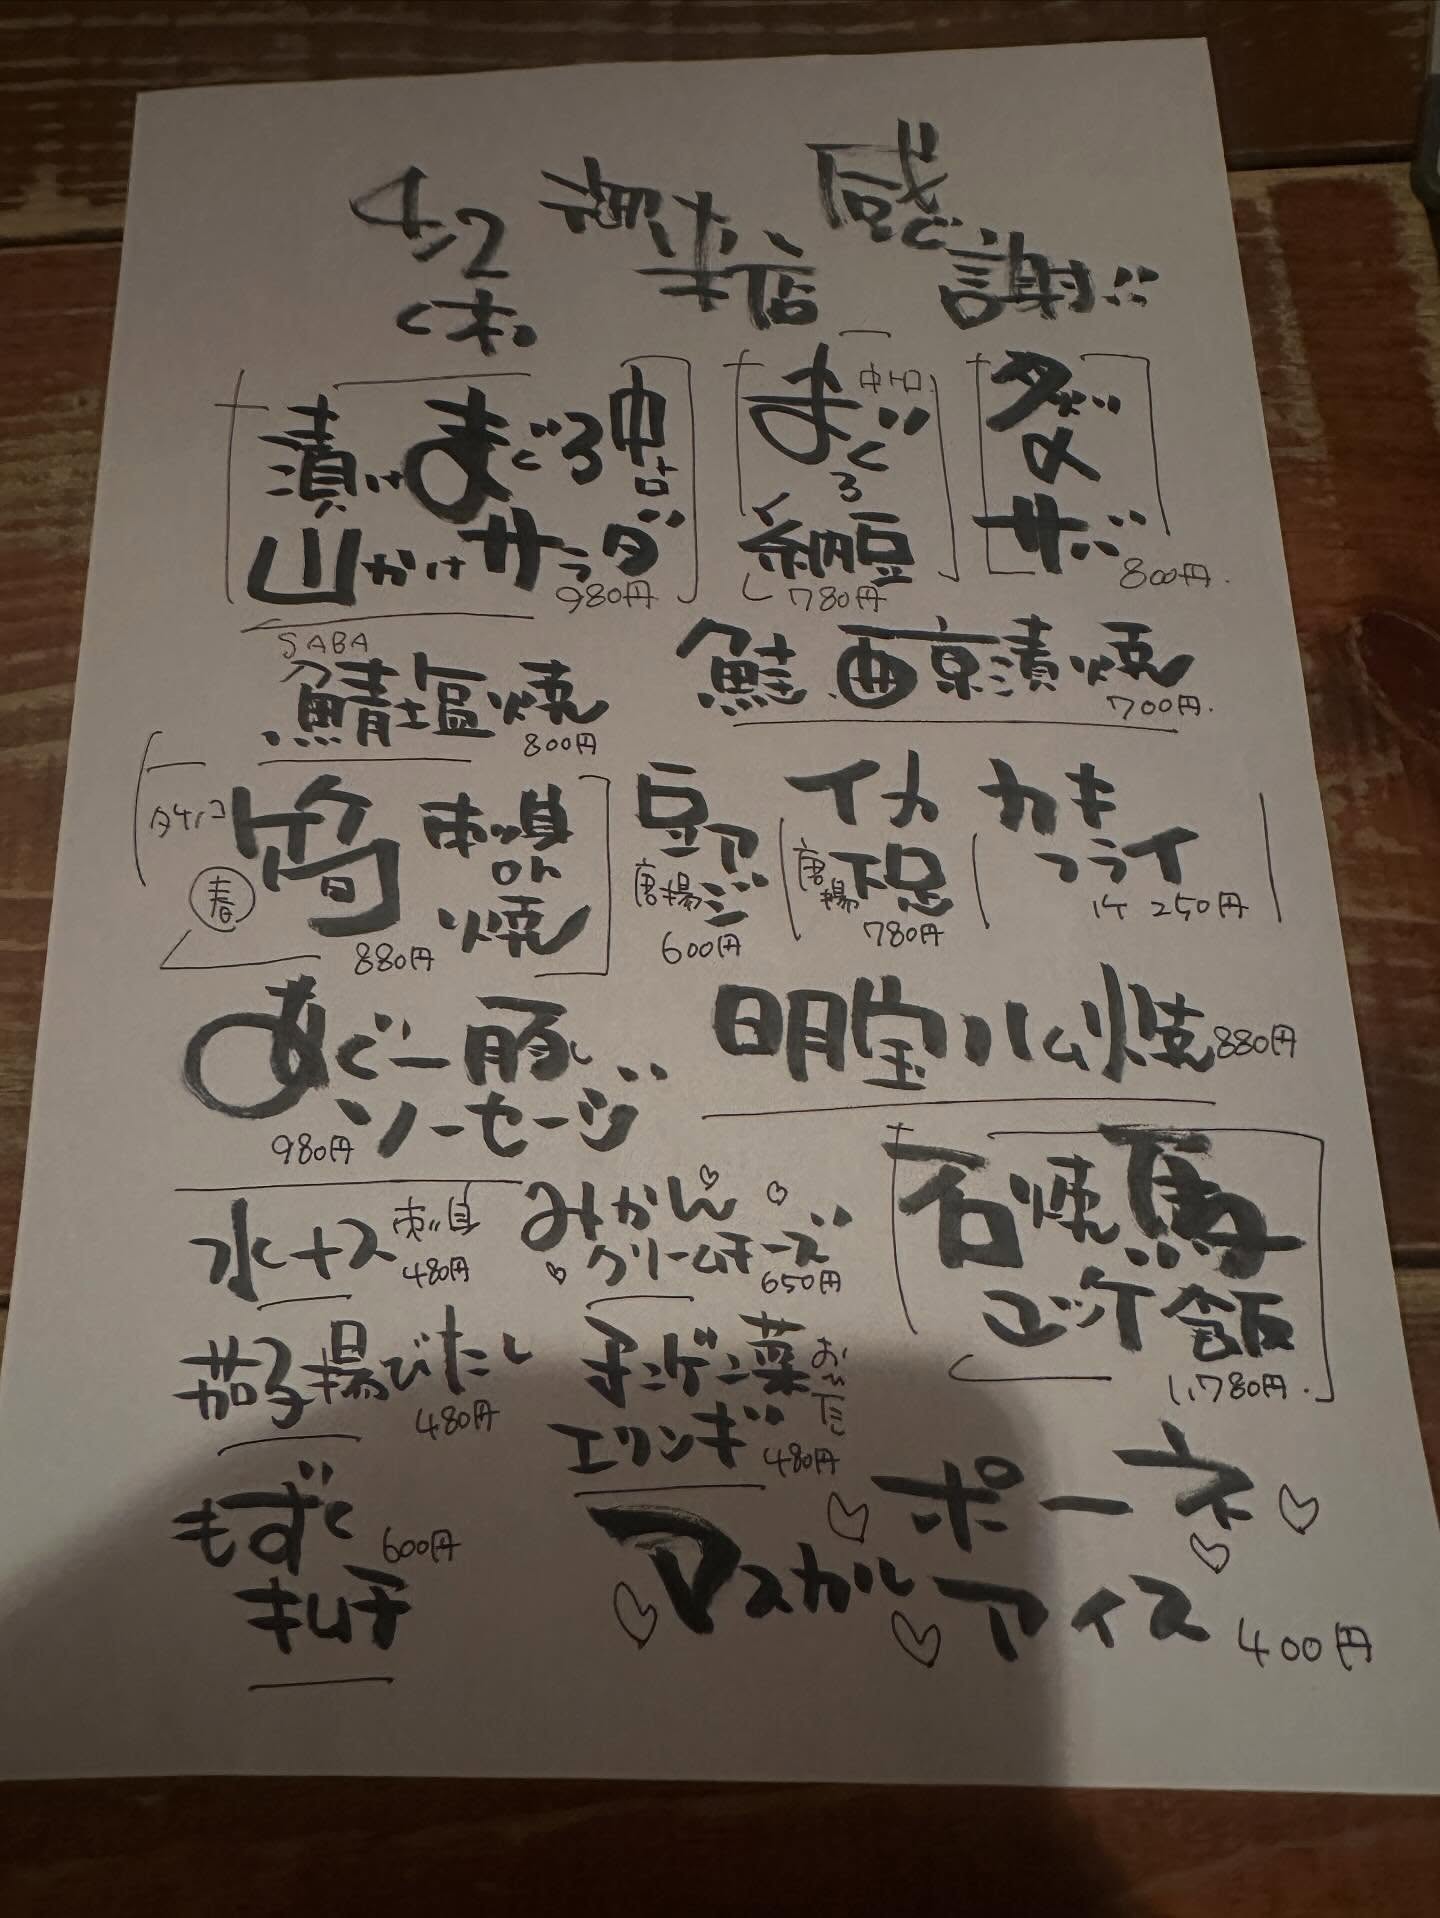 4/2 御来店 感謝!!
く木。
漬けまぐろ中トロ
山かけサラダ
980円
まぐろ 中トロ
納豆
780円
ダメ
サバ
800円.
SABA
鯖塩焼
800円
鮭西京漬焼
700円.
タケノコ
春
筍
刺身
or
焼
880円
豆アジ
唐揚
600円
イカ
下足
唐揚
780円
カキ
フライ
1ケ 250円
あぐー豚
ソーセージ
980円
明宝ハム焼
880円
水ナス 刺身
480円
みかん
クリームチーズ
650円
石焼馬
ユッケ飯
1,780円.
茄子揚びたし
480円
チンゲン菜
エリンギ
480円
もずく
キムチ
600円
マスカルポーネ
アイス
400円